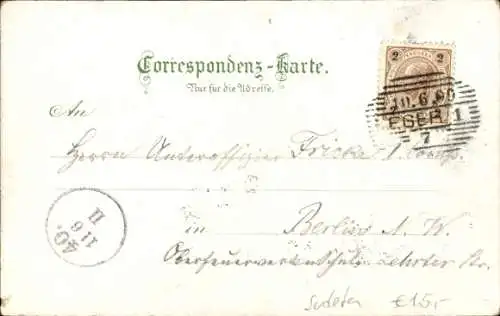 Correspondenz-Karte.
Nur für die Adresse.
2 2
10.6.
EGER 1
7
An
Herrn Unteroffizier Fricke 1. Comp.
in Berlin N. W.
Oberfeuerwerker Schule Lehrter Str.
40.
11 6
II
Sudeten €15,-